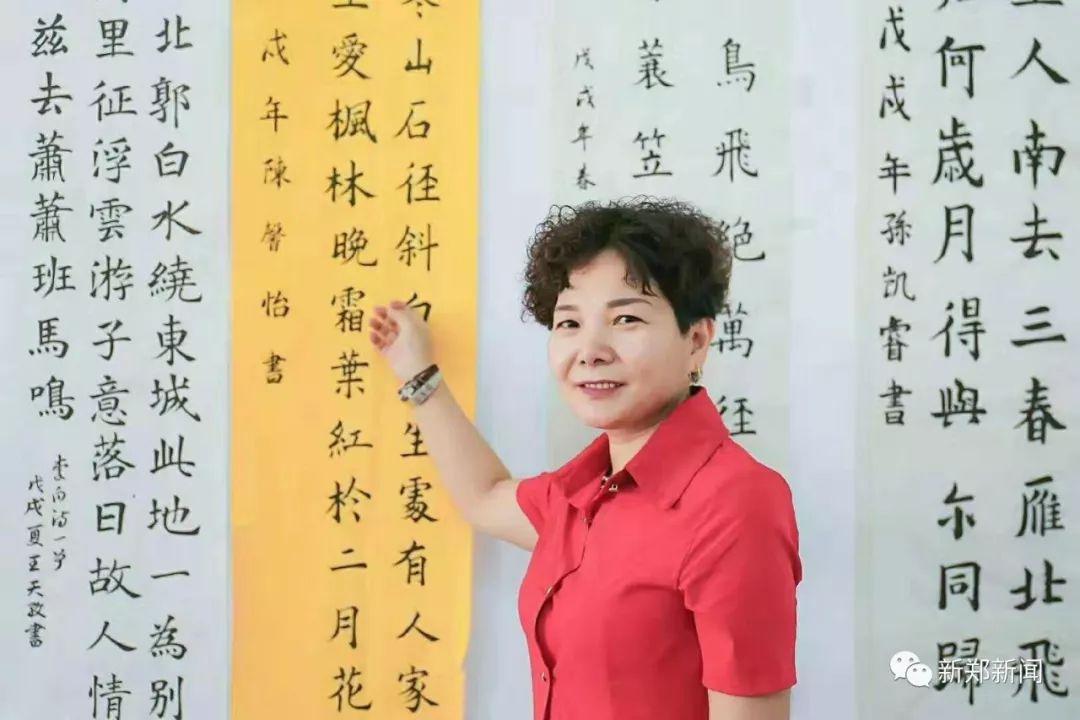 人南去三春雁北飛
何歲月得與尔同歸
戊戌年孫凱睿書
鳥飛絕萬徑
蓑笠
戊戌年春
寒山石径斜白生處有人家
愛楓林晚霜葉紅於二月花
戌年陳馨怡書
北郭白水繞東城此地一為別
里征浮雲游子意落日故人情
兹去蕭蕭班馬鳴
李白詩一首
戊戌夏王天政書
新郑新闻